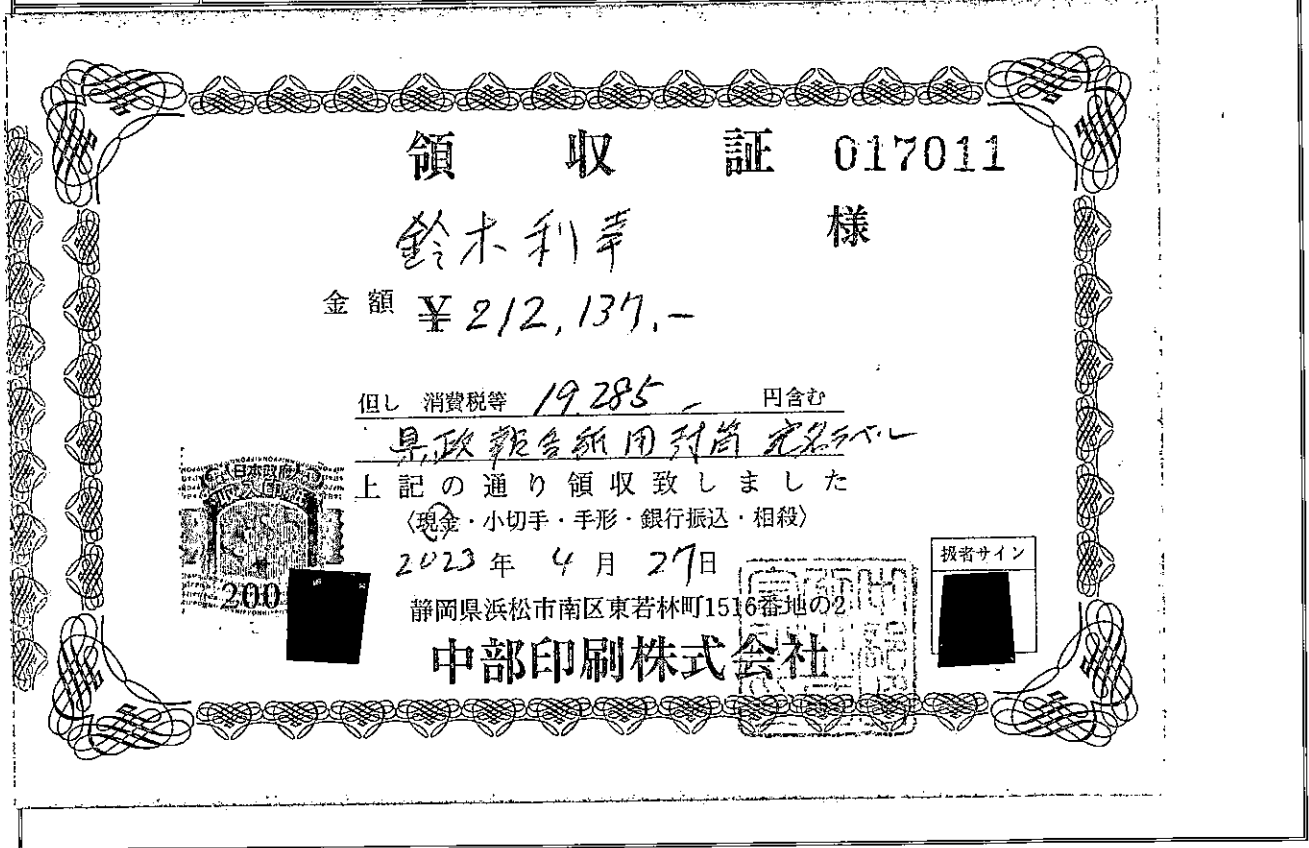 領収証 017011
鈴木利幸 様
金額 ¥212,137.-
但し 消費税等 19,285.- 円含む
県政報告紙用封筒 宛名ラベル
上記の通り領収致しました
〈現金・小切手・手形・銀行振込・相殺〉
2023年 4月 27日
日本政府
200
扱者サイン
静岡県浜松市南区東若林町1516番地の2
中部印刷株式会社